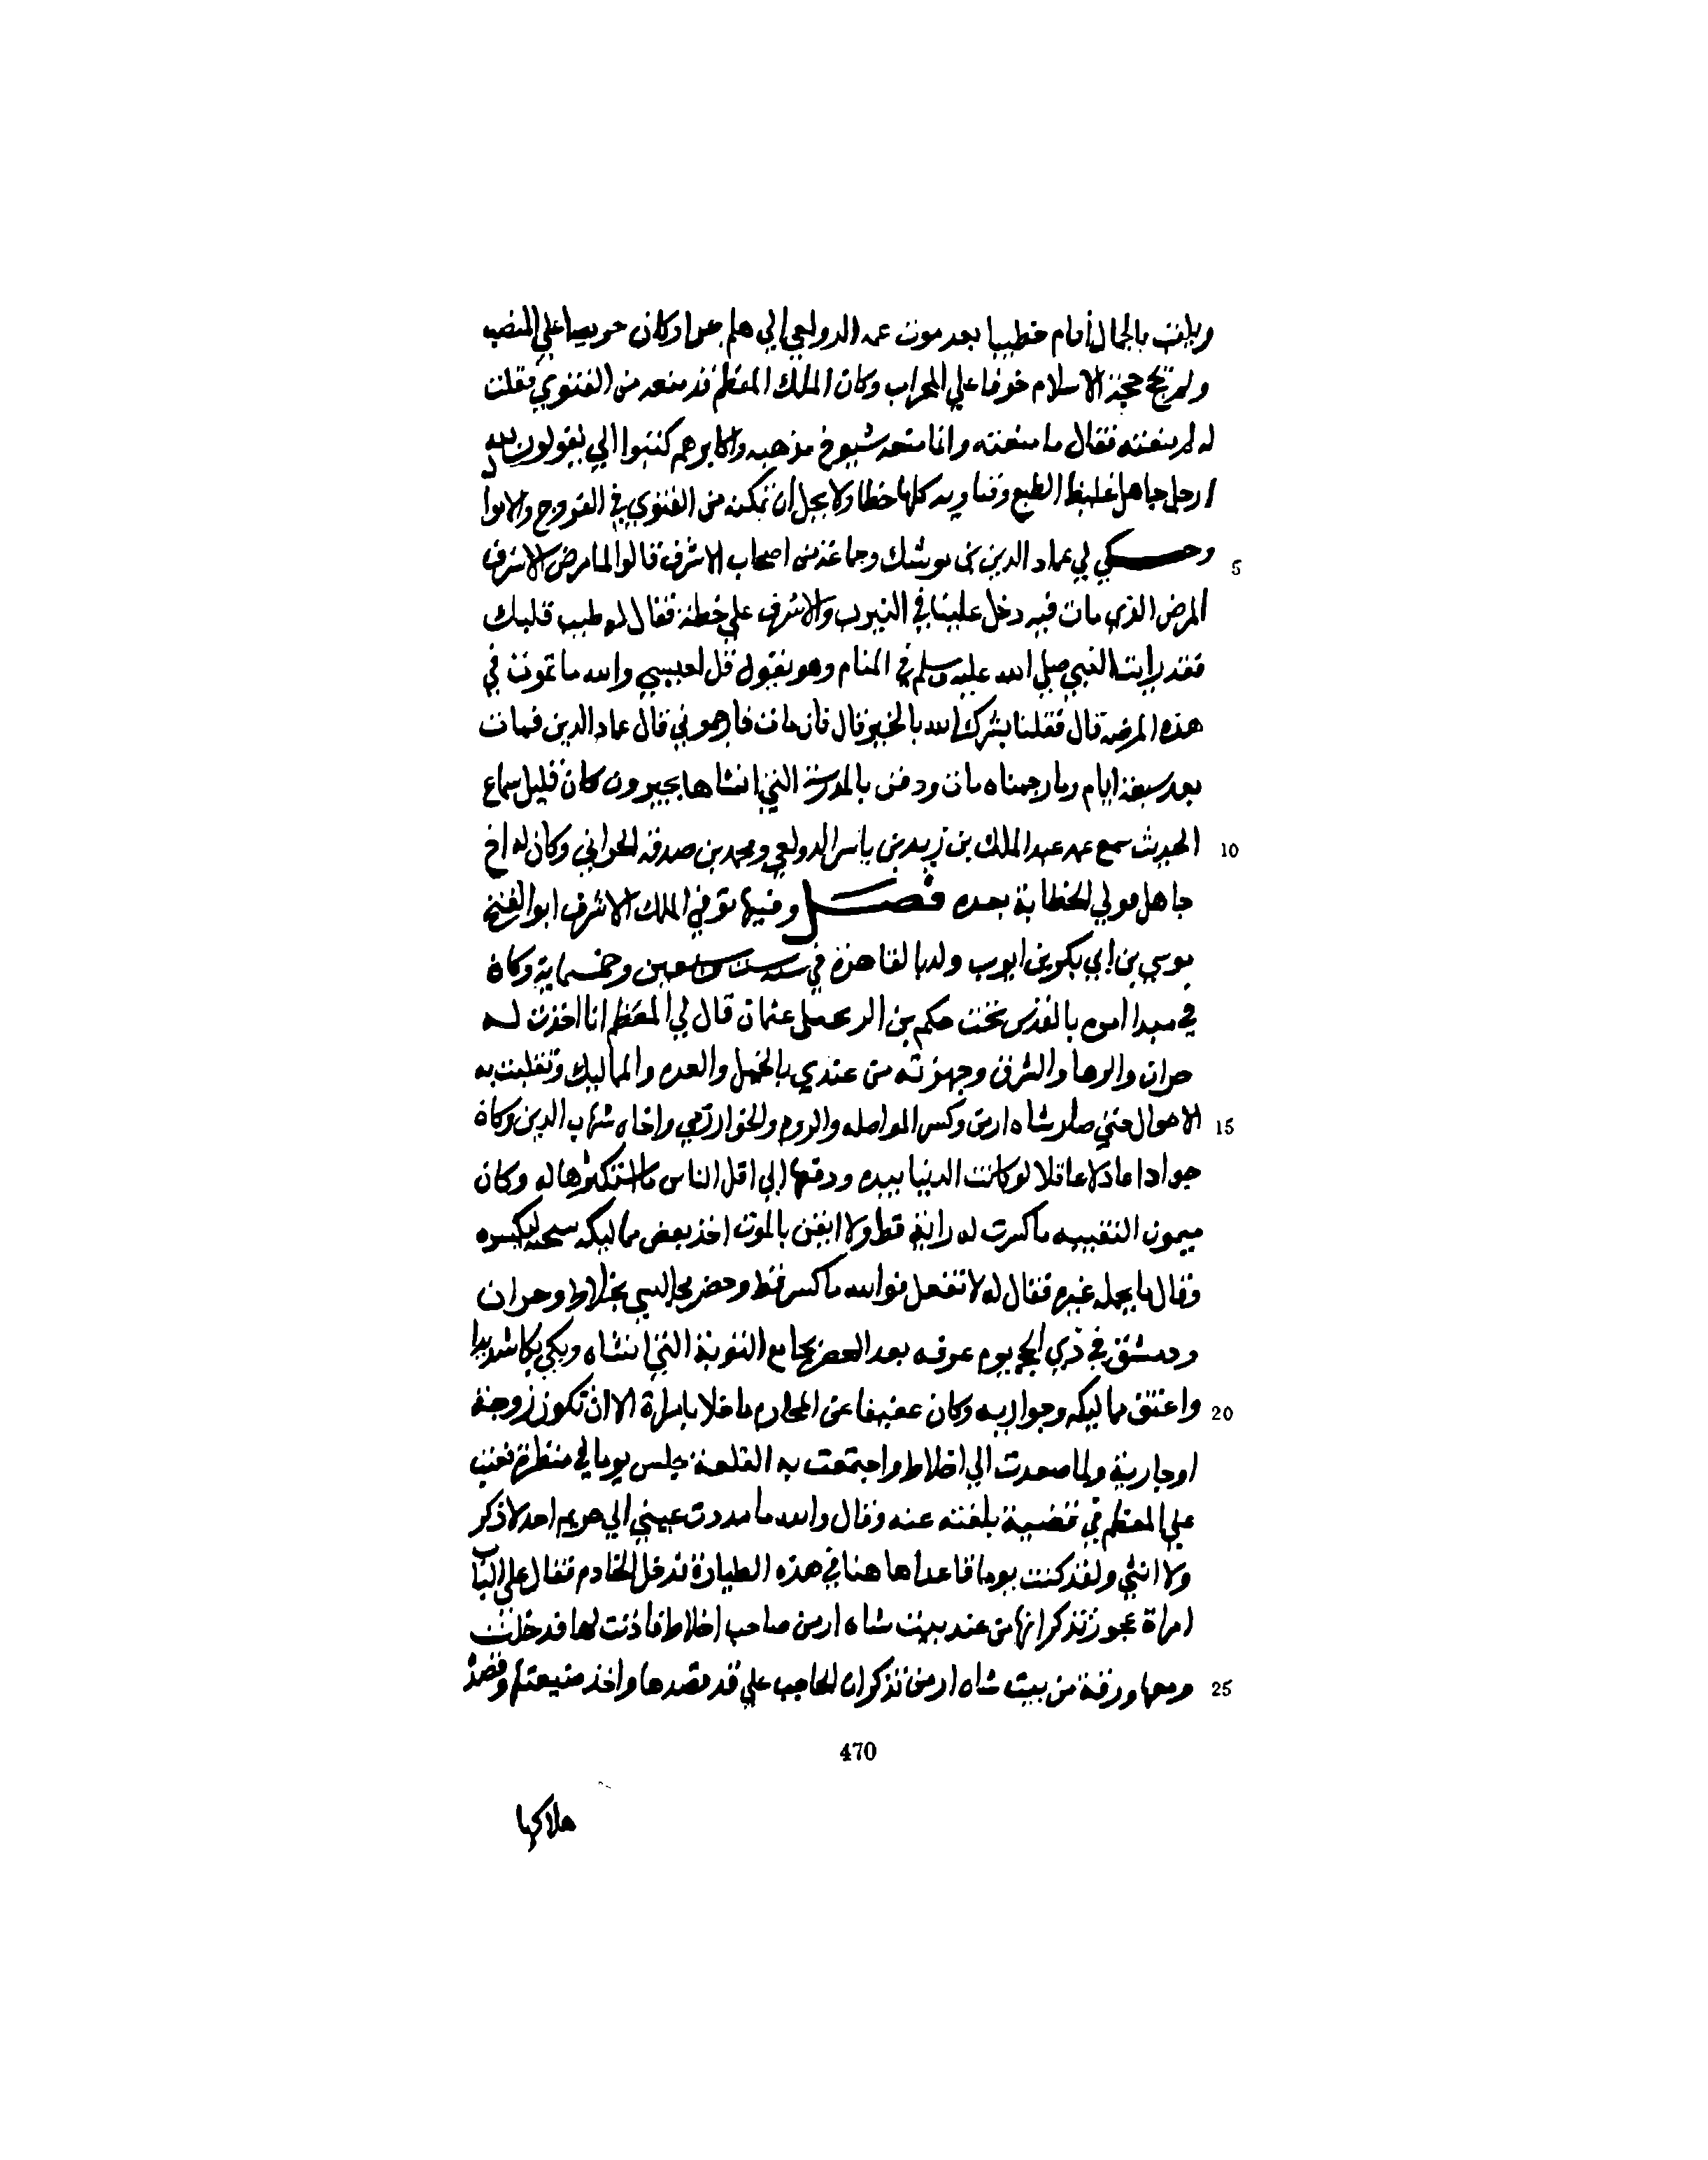 ويلقب بالجمال أقام خطيبا بعد موت عمه الدولعي إلى هلم جرا وكان حريصا علي المنصب
ولم يحج حجة الاسلام خوفا علي المحراب وكان الملك المعظم قد منعه من الفتوي فقلت
له لم منعته فقال ما منعته وانا متعه شيوخ مذهبه واكابرهم كتبوا الي يقولون
رجل جاهل غليظ الطبع وفتاويه كلها خطا ولا يحل ان تمكنه من الفتوي في الفروج والاموا
5 وحكي لي عماد الدين بن موشك وجماعة من اصحاب الاشرف قالوا لما مرض الاشرف
المرض الذي مات فيه دخل علينا في النيرب والاشرف علي خطة فقال له طيب قلبك
فقد رايت النبي صلى الله عليه وسلم في المنام وهو يقول قل لعيسى والله ما تموت في
هذه المرضه قال فقلنا بشرك الله بالخير قال فان مات فارجموني قال عماد الدين فمات
بعد سبعة ايام وما رجمناه مات ودفن بالمدرسة التي انشاها بجيرون كان قليل سماع
10 الحديث سمع عمه عبد الملك بن زيد بن ياسر الدولعي ومحمد بن صدقه الحراني وكان له اخ
جاهل فولي الخطابة بعده فصل وفيها توفي الملك الاشرف ابو الفتح
موسي بن ابي بكر بن ايوب ولد بالقاهرة في سنة ست وسبعين وخمسماية وكان
في مبدا امره بالقدس تحت حكم بن الزنجيلي عثمان قال لي المعظم انا اخذت له
حران والرها والشرق وجهزته من عندي بالخيل والعدد والمماليك وتقلبت به
15 الاحوال حتي صار شاه ارمن وكسر المواصله والروم والخوارزمي واخاه شهاب الدين وكان
جوادا عادلا عاقلا لو كانت الدنيا بيده ودفعها الي اقل الناس ما استكثرها له وكان
ميمون النقيبه ما كسرت له راية قط ولا ايقن بالموت اخذ بعض مماليكه سحبه ليكسره
وقال ما يحله غيره فقال له لا تفعل فوالله ما كسر قط وحضر مجالسي بخلاط وحران
ودمشق في ذي الحج يوم عرفه بعد العصر بجامع التوبة التي انشاه وبكي بكا شديدا
20 واعتق مماليكه وجواريه وكان عفيفا عن المحارم ما خلا بامراة الا ان تكون زوجة
او جارية ولما صعدت الي اخلاط واجتمعت به القلعة جلس يوما في منظرة تعتب
علي المعظم في قضية بلغته عنه وقال والله ما مددت عيني الي حريم احد لا ذكر
ولا انثي ولقد كنت يوما قاعدا ها هنا في هذه الطيارة فدخل الخادم فقال علي الباب
امراة عجوز تذكر انها من عند بنت شاه ارمن صاحب اخلاط فاذنت لها فدخلت
25 ومعها ورقة من بنت شاه ارمن تذكر ان الحاجب علي قد قصدها واخذ ضيعتها وقصد
470
هلاكها